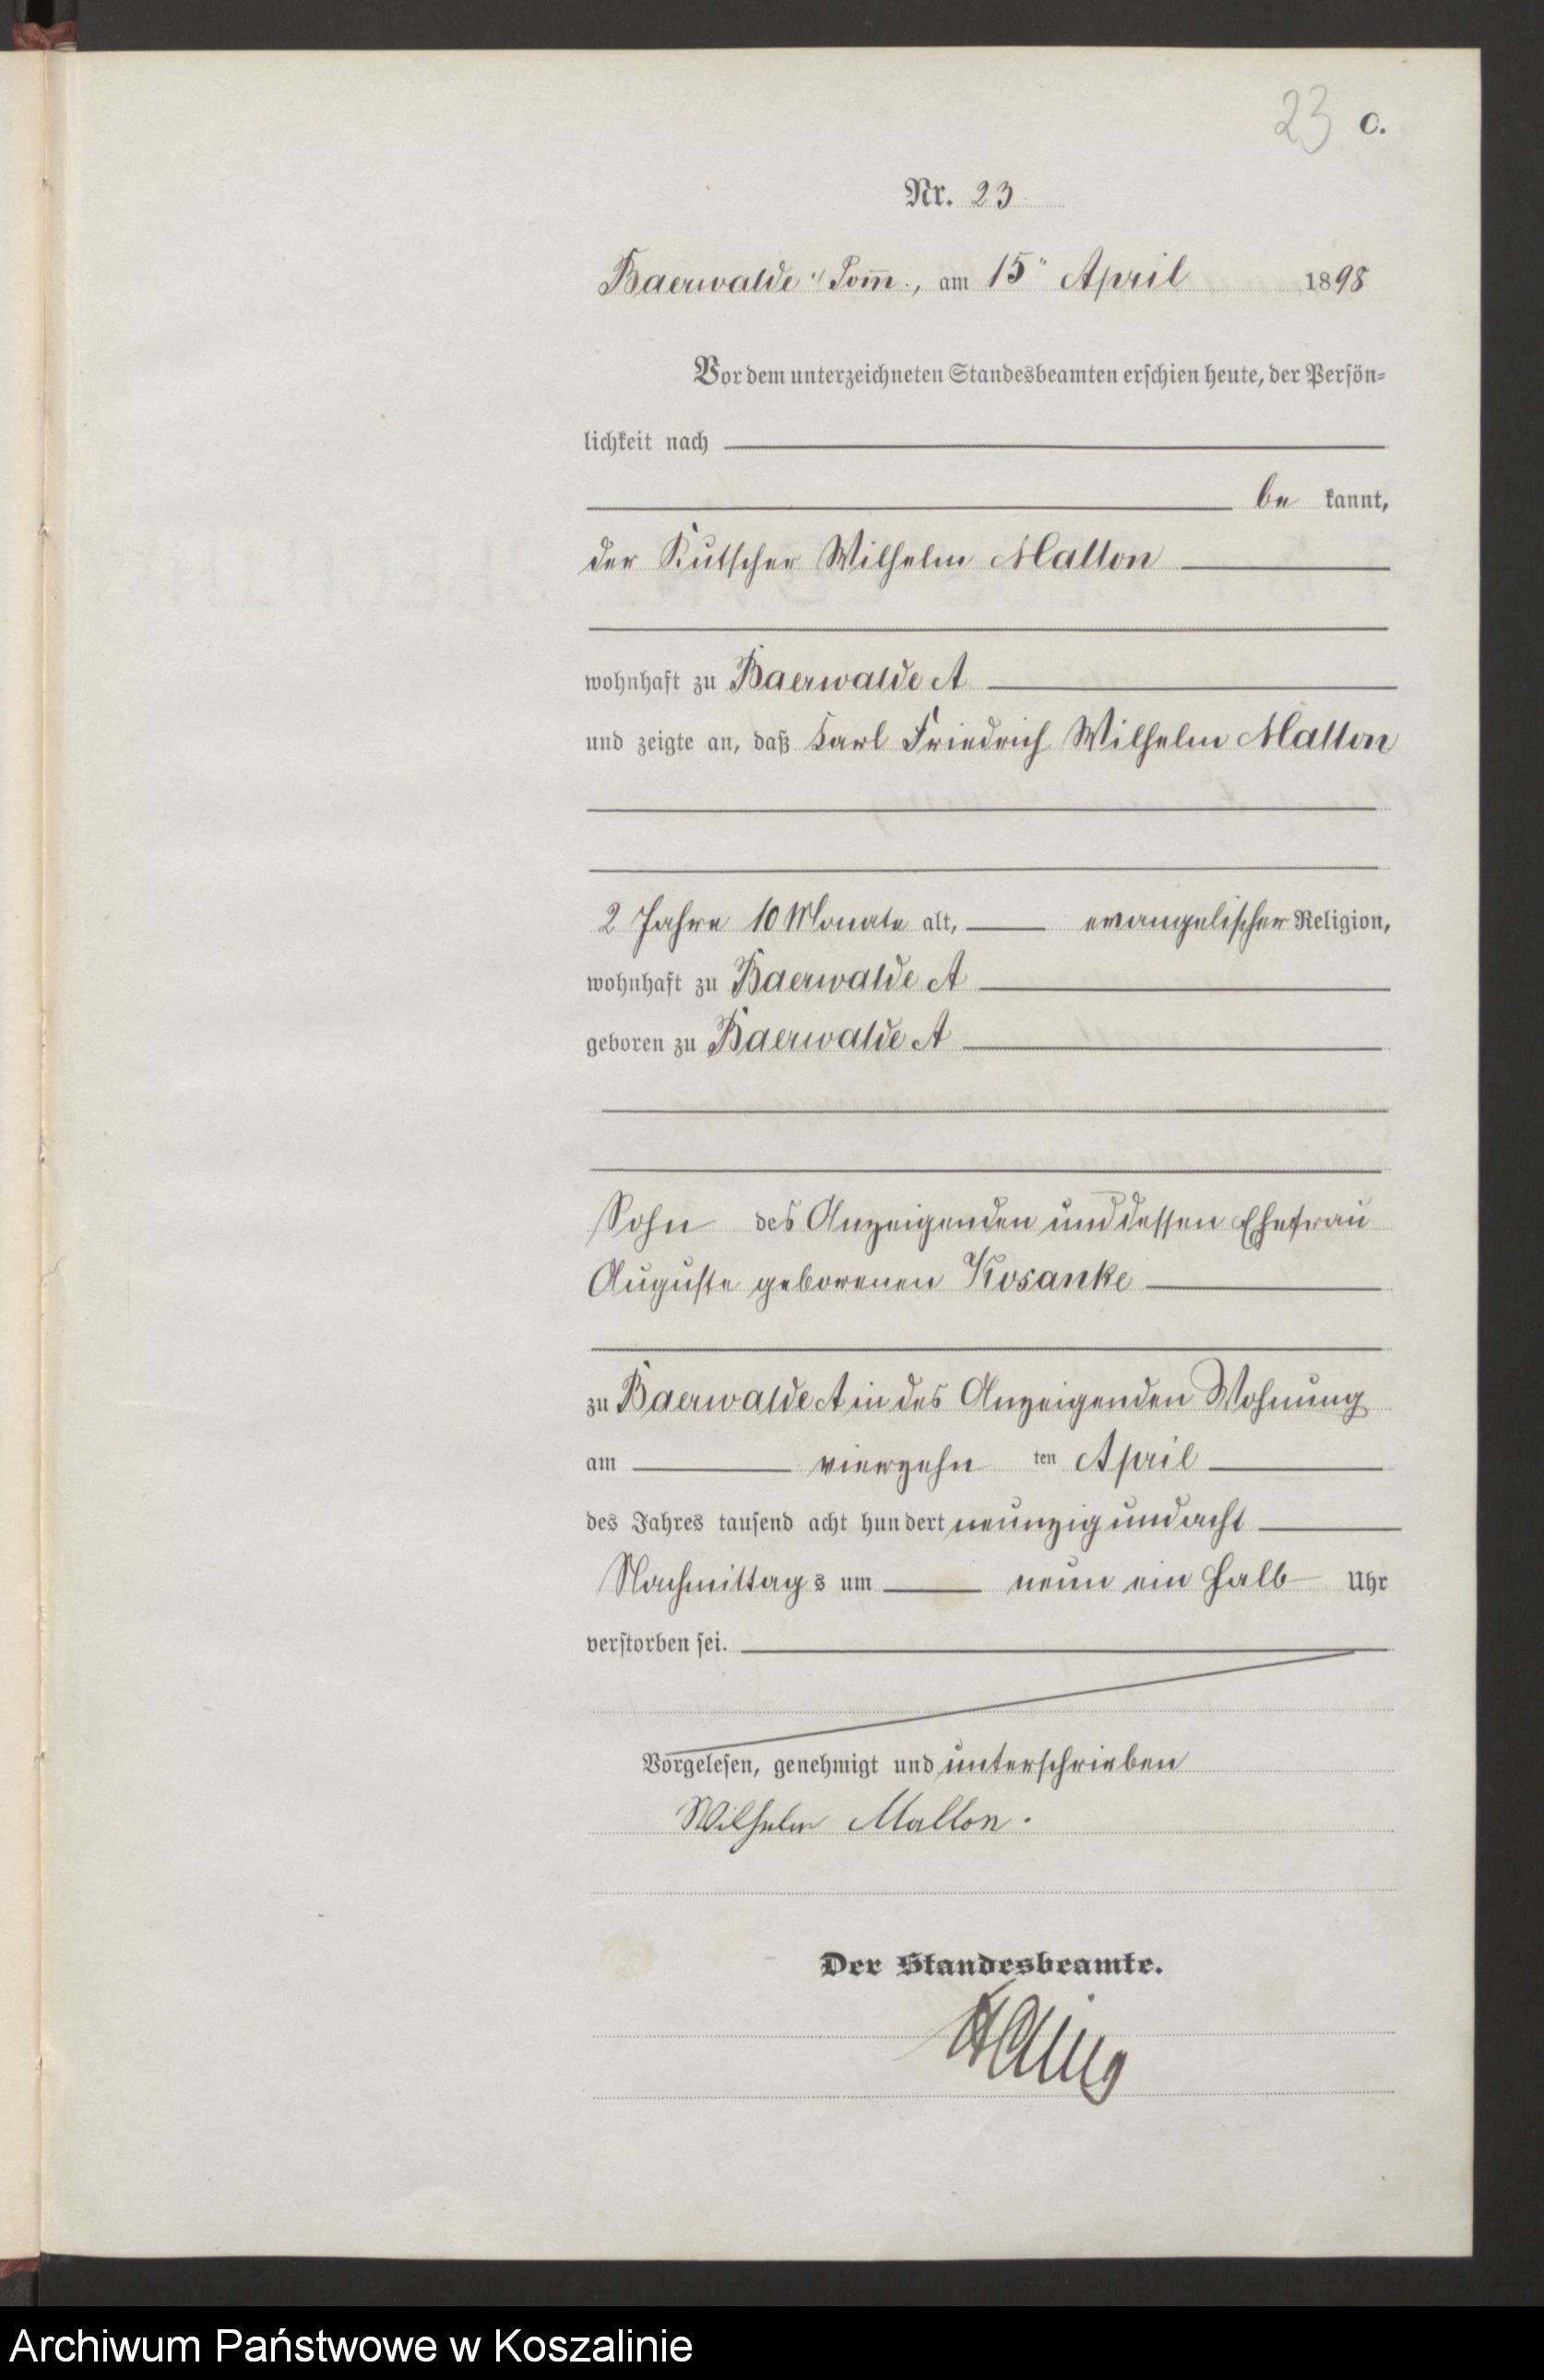 23 C.
Nr. 23
Baerwalde i/Pom̅., am 15" April 1898
Vor dem unterzeichneten Standesbeamten erschien heute, der Persön-
lichkeit nach
be kannt,
der Kutscher Wilhelm Mallon
wohnhaft zu Baerwalde A
und zeigte an, daß Karl Friedrich Wilhelm Mallon
2 Jahre 10 Monate alt, evangelischer Religion,
wohnhaft zu Baerwalde A
geboren zu Baerwalde A
Sohn des Anzeigenden und dessen Ehefrau
Auguste geborenen Kosanke
zu Baerwalde A in des Anzeigenden Wohnung
am vierzehn ten April
des Jahres tausend acht hundert neunzig und acht
Nachmittags um neun ein halb Uhr
verstorben sei.
Vorgelesen, genehmigt und unterschrieben
Wilhelm Mallon.
Der Standesbeamte.
Archiwum Państwowe w Koszalinie